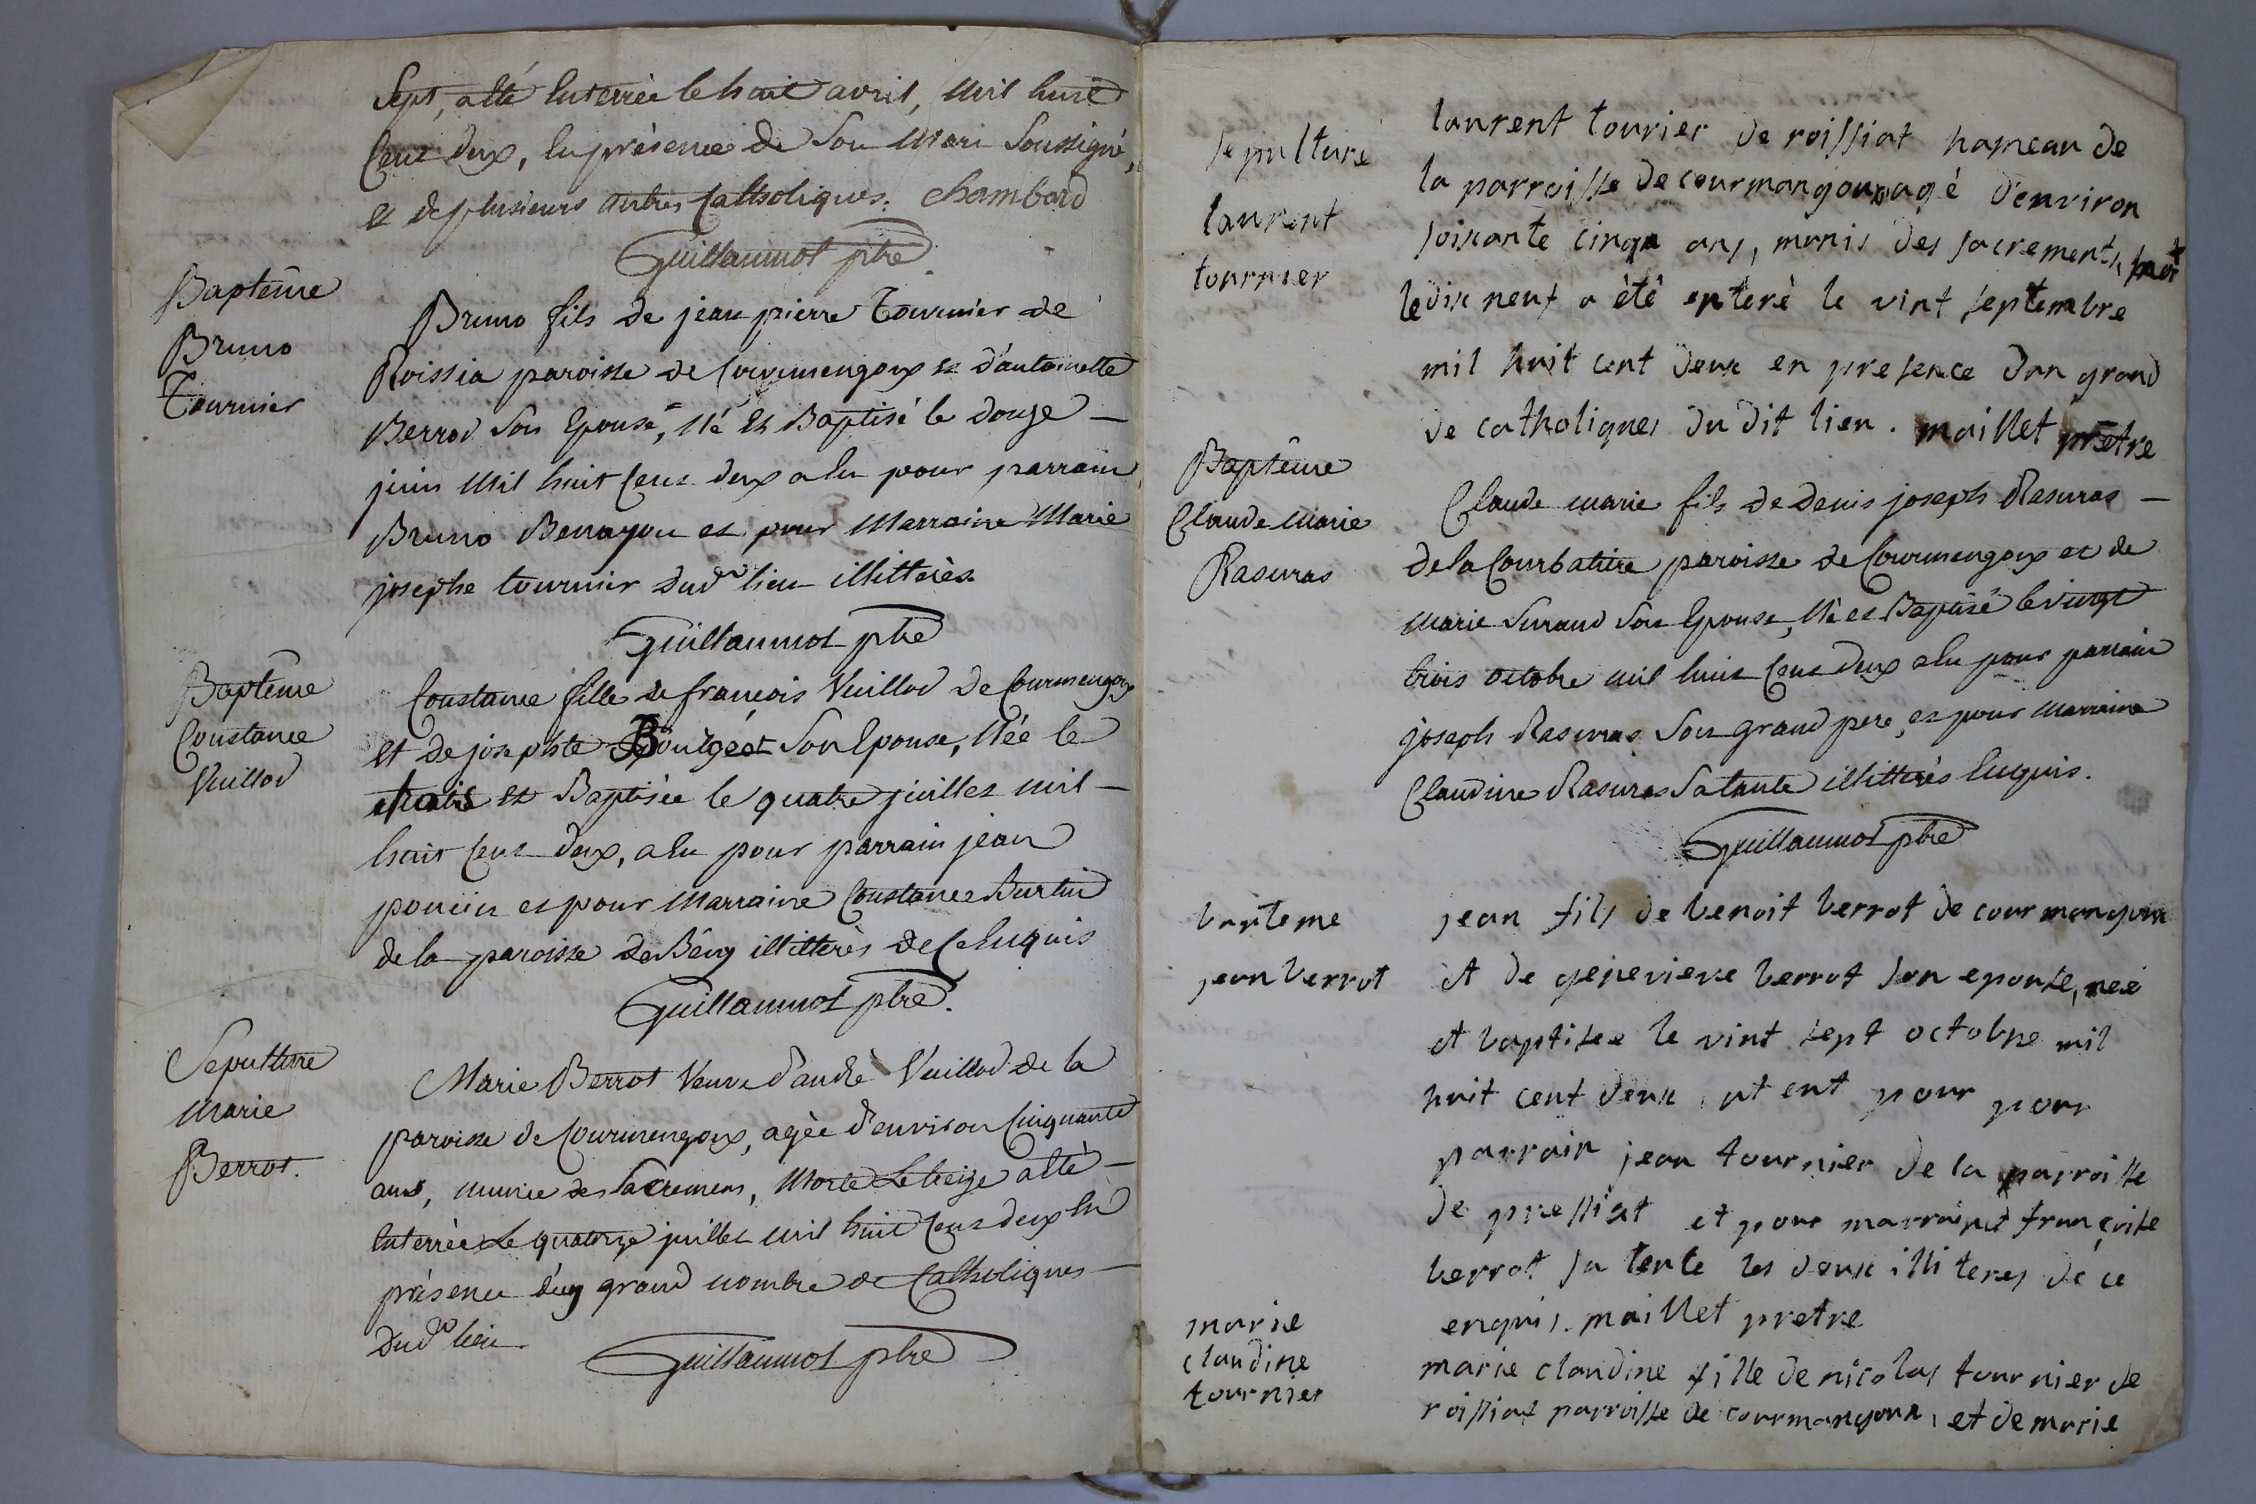 Sept, a été Enterrée le huit avril, Mil huit
Cent deux, En présence de Son Mari Soussigné,
et de plusieurs autres Catholiques. Chambard
Guillaumot ptre
Baptême
Bruno
Tournier
Bruno fils de jean pierre Tournier de
Roissia paroisse de Courmengoux et d'antoinette
Berrod Son Epouse, Né Et Baptisé le douze
juin Mil huit Cent deux a Eu pour parrain
Bruno Benayou et pour Marraine Marie
josephe tournier dud lieu illitterés
Guillaumot ptre
Baptême
Constance
Vuillod
Constance fille de françois Vuillod de Courmengoux
et de josephte Boulgeot Son Epouse, Née le
et Baptisée le quatre juillet mil
huit Cent deux, a Eu pour parrain jean
poncin et pour Marraine Constance Burtin
de la paroisse de Bény illitterés de Ce Enquis
Guillaumot ptre.
Sepulture
Marie
Berrot.
Marie Berrot Veuve d'andré Vuillod de la
paroisse de Courmengoux, agée d'environ Cinquante
ans, munie des Sacremens, Morte Le treize a été
Enterrée Le quatorze juillet mil huit Cent deux En
présence d'un grand nombre de Catholiques
Dud lieu.
Guillaumot ptre
sepulture
laurent
tournier
laurent tourier de roissiat hameau de
la parroisse de courmangoux agé d'environ
soixante cinqu ans, munis des sacrements, mort
le dix neuf a été enteré le vint septembre
mil huit cent deux en presence d'un grand
de catholiques du dit lieu. maillet prêtre
Baptême
Claude Marie
Rasuras
Claude marie fils de denis joseph Rasuras
de la Courbatière paroisse de Courmengoux et de
Marie Surand Son Epouse, Né et Baptisé le vingt
trois octobre mil huit Cent deux a Eu pour parrain
joseph Rasuras Son grand pere, et pour Marraine
Claudine Rasuras Sa tante illitterés Enquis.
Guillaumot ptre
bapteme
jean berrot
jean fils de benoit berrot de courmangoux
et de genevieve berrot son epouse, neé
et baptisee le vint sept octobre mil
huit cent deux et ent pour pour
parrain jean tournier de la parroisse
de pressiat et pour marraine françoise
berrot sa tente les deux illiteres de ce
enquis. maillet pretre
marie
claudine
tournier
marie claudine fille de nicolas tournier de
roissiat parroisse de courmangoux, et de marie